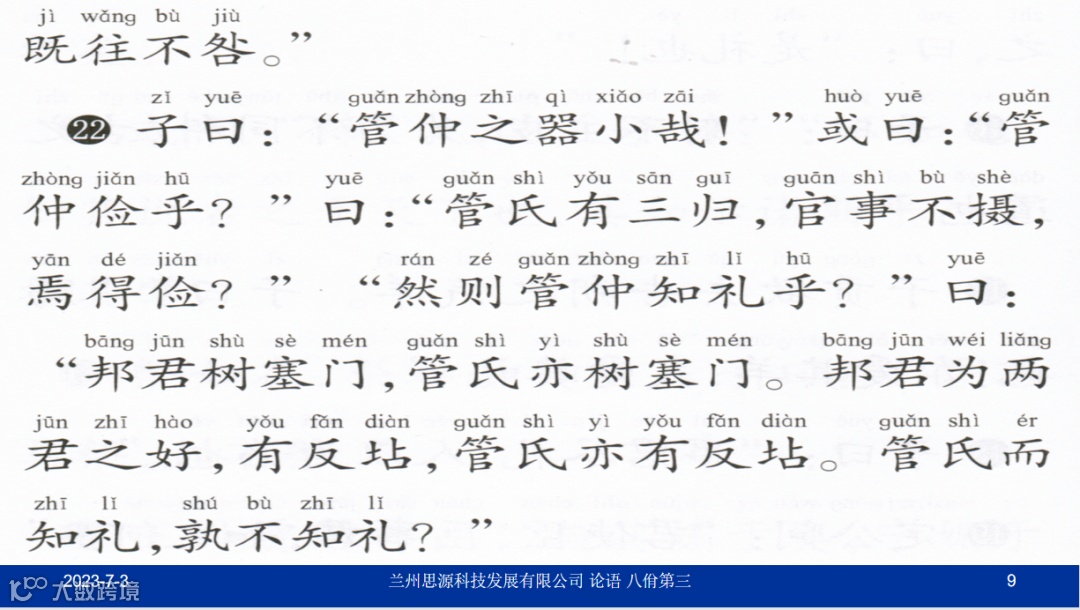 jì wǎng bù jiù
既往不咎。”
zǐ yuē guǎn zhòng zhī qì xiǎo zāi huò yuē guǎn
㉒ 子曰：“管仲之器小哉！”或曰：“管
zhòng jiǎn hū yuē guǎn shì yǒu sān guī guān shì bù shè
仲俭乎？”曰：“管氏有三归，官事不摄，
yān dé jiǎn rán zé guǎn zhòng zhī lǐ hū yuē
焉得俭？”“然则管仲知礼乎？”曰：
bāng jūn shù sè mén guǎn shì yì shù sè mén bāng jūn wéi liǎng
“邦君树塞门，管氏亦树塞门。邦君为两
jūn zhī hào yǒu fǎn diàn guǎn shì yì yǒu fǎn diàn guǎn shì ér
君之好，有反坫，管氏亦有反坫。管氏而
zhī lǐ shú bù zhī lǐ
知礼，孰不知礼？”
2023-7-3 兰州思源科技发展有限公司 论语 八佾第三 9
大数跨境